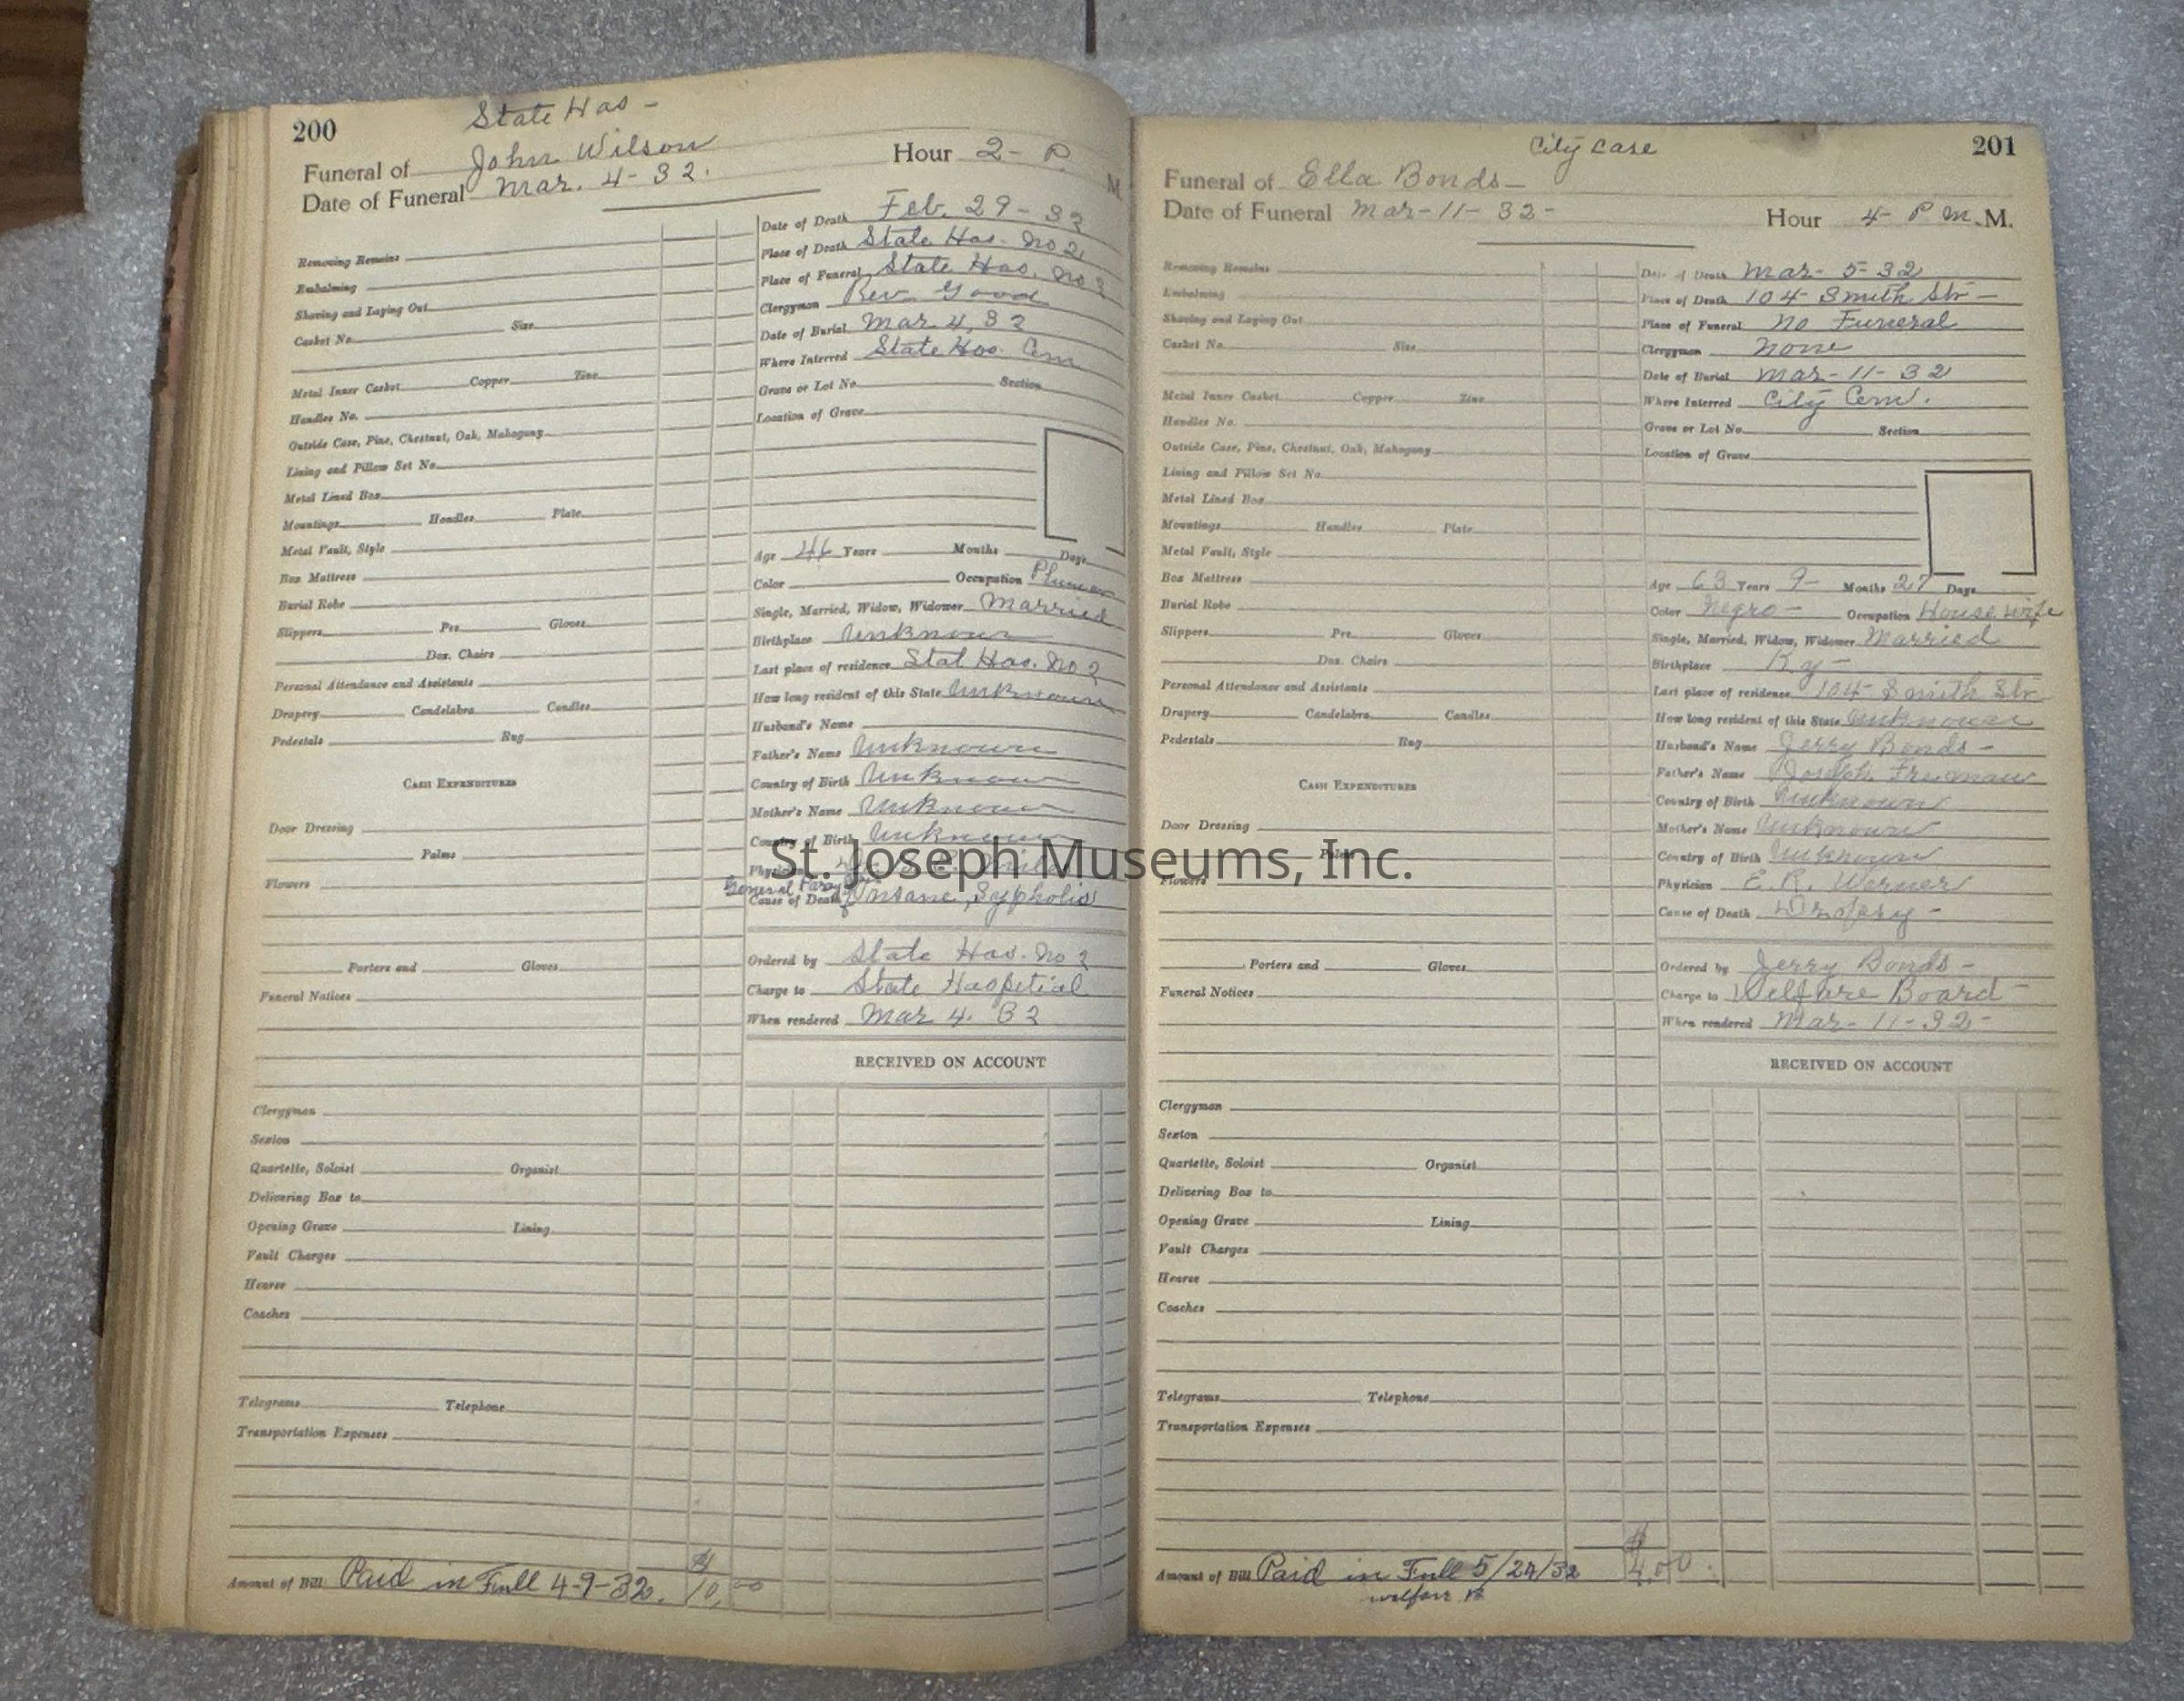 200
State Hos -
Funeral of John Wilson Hour 2- P. M.
Date of Funeral Mar. 4-32.
Removing Remains
Embalming
Shaving and Laying Out
Casket No. Size
Metal Inner Casket Copper Zinc
Handles No.
Outside Case, Pine, Chestnut, Oak, Mahogany
Lining and Pillow Set No.
Metal Lined Box
Mountings Handles Plate
Metal Vault, Style
Box Mattress
Burial Robe
Slippers Pre Gloves
Doz. Chairs
Personal Attendance and Assistants
Drapery Candelabra Candles
Pedestals Rug
CASH EXPENDITURES
Door Dressing
Palms
Flowers
Porters and Gloves
Funeral Notices
Clergyman
Sexton
Quartette, Soloist Organist
Delivering Box to
Opening Grave Lining
Vault Charges
Hearse
Coaches
Telegrams Telephone
Transportation Expenses
Amount of Bill Paid in Full 4-9-32. $10.00
Date of Death Feb. 29-32
Place of Death State Hos. No 2
Place of Funeral State Hos. No 2
Clergyman Rev Good
Date of Burial Mar 4, 32
Where Interred State Hos. Cem
Grave or Lot No. Section
Location of Grave
Age 46 Years Months Days
Color Occupation
Single, Married, Widow, Widower Married
Birthplace Unknown
Last place of residence Stat Hos. No 2
How long resident of this State Unknown
Husband's Name
Father's Name Unknown
Country of Birth Unknown
Mother's Name Unknown
Country of Birth Unknown
Physician
General
Cause of Death Insane, Sypholis
Ordered by State Hos. No 2
Charge to State Hospetial
When rendered Mar 4. 32
RECEIVED ON ACCOUNT
St. Joseph Museums, Inc.
City Case 201
Funeral of Ella Bonds-
Date of Funeral Mar-11-32- Hour 4- P m. M.
Removing Remains
Embalming
Shaving and Laying Out
Casket No. Size
Metal Inner Casket Copper Zinc
Handles No.
Outside Case, Pine, Chestnut, Oak, Mahogany
Lining and Pillow Set No.
Metal Lined Box
Mountings Handles Plate
Metal Vault, Style
Box Mattress
Burial Robe
Slippers Pre Gloves
Doz. Chairs
Personal Attendance and Assistants
Drapery Candelabra Candles
Pedestals Rug
CASH EXPENDITURES
Door Dressing
Palms
Flowers
Porters and Gloves
Funeral Notices
Clergyman
Sexton
Quartette, Soloist Organist
Delivering Box to
Opening Grave Lining
Vault Charges
Hearse
Coaches
Telegrams Telephone
Transportation Expenses
Amount of Bill Paid in Full 5/24/32 $4.00
welfare
Date of Death Mar- 5-32
Place of Death 104 Smith Str-
Place of Funeral No Funeral
Clergyman None
Date of Burial Mar-11-32
Where Interred City Cem.
Grave or Lot No. Section
Location of Grave
Age 63 Years 9- Months 27 Days
Color Negro- Occupation House wife
Single, Married, Widow, Widower Married
Birthplace Ky-
Last place of residence 104 Smith Str
How long resident of this State Unknown
Husband's Name Jerry Bonds-
Father's Name Joseph Freeman
Country of Birth Unknown
Mother's Name Unknown
Country of Birth Unknown
Physician E. R. Werner
Cause of Death Dropsy-
Ordered by Jerry Bonds-
Charge to Welfare Board
When rendered Mar- 11-32-
RECEIVED ON ACCOUNT